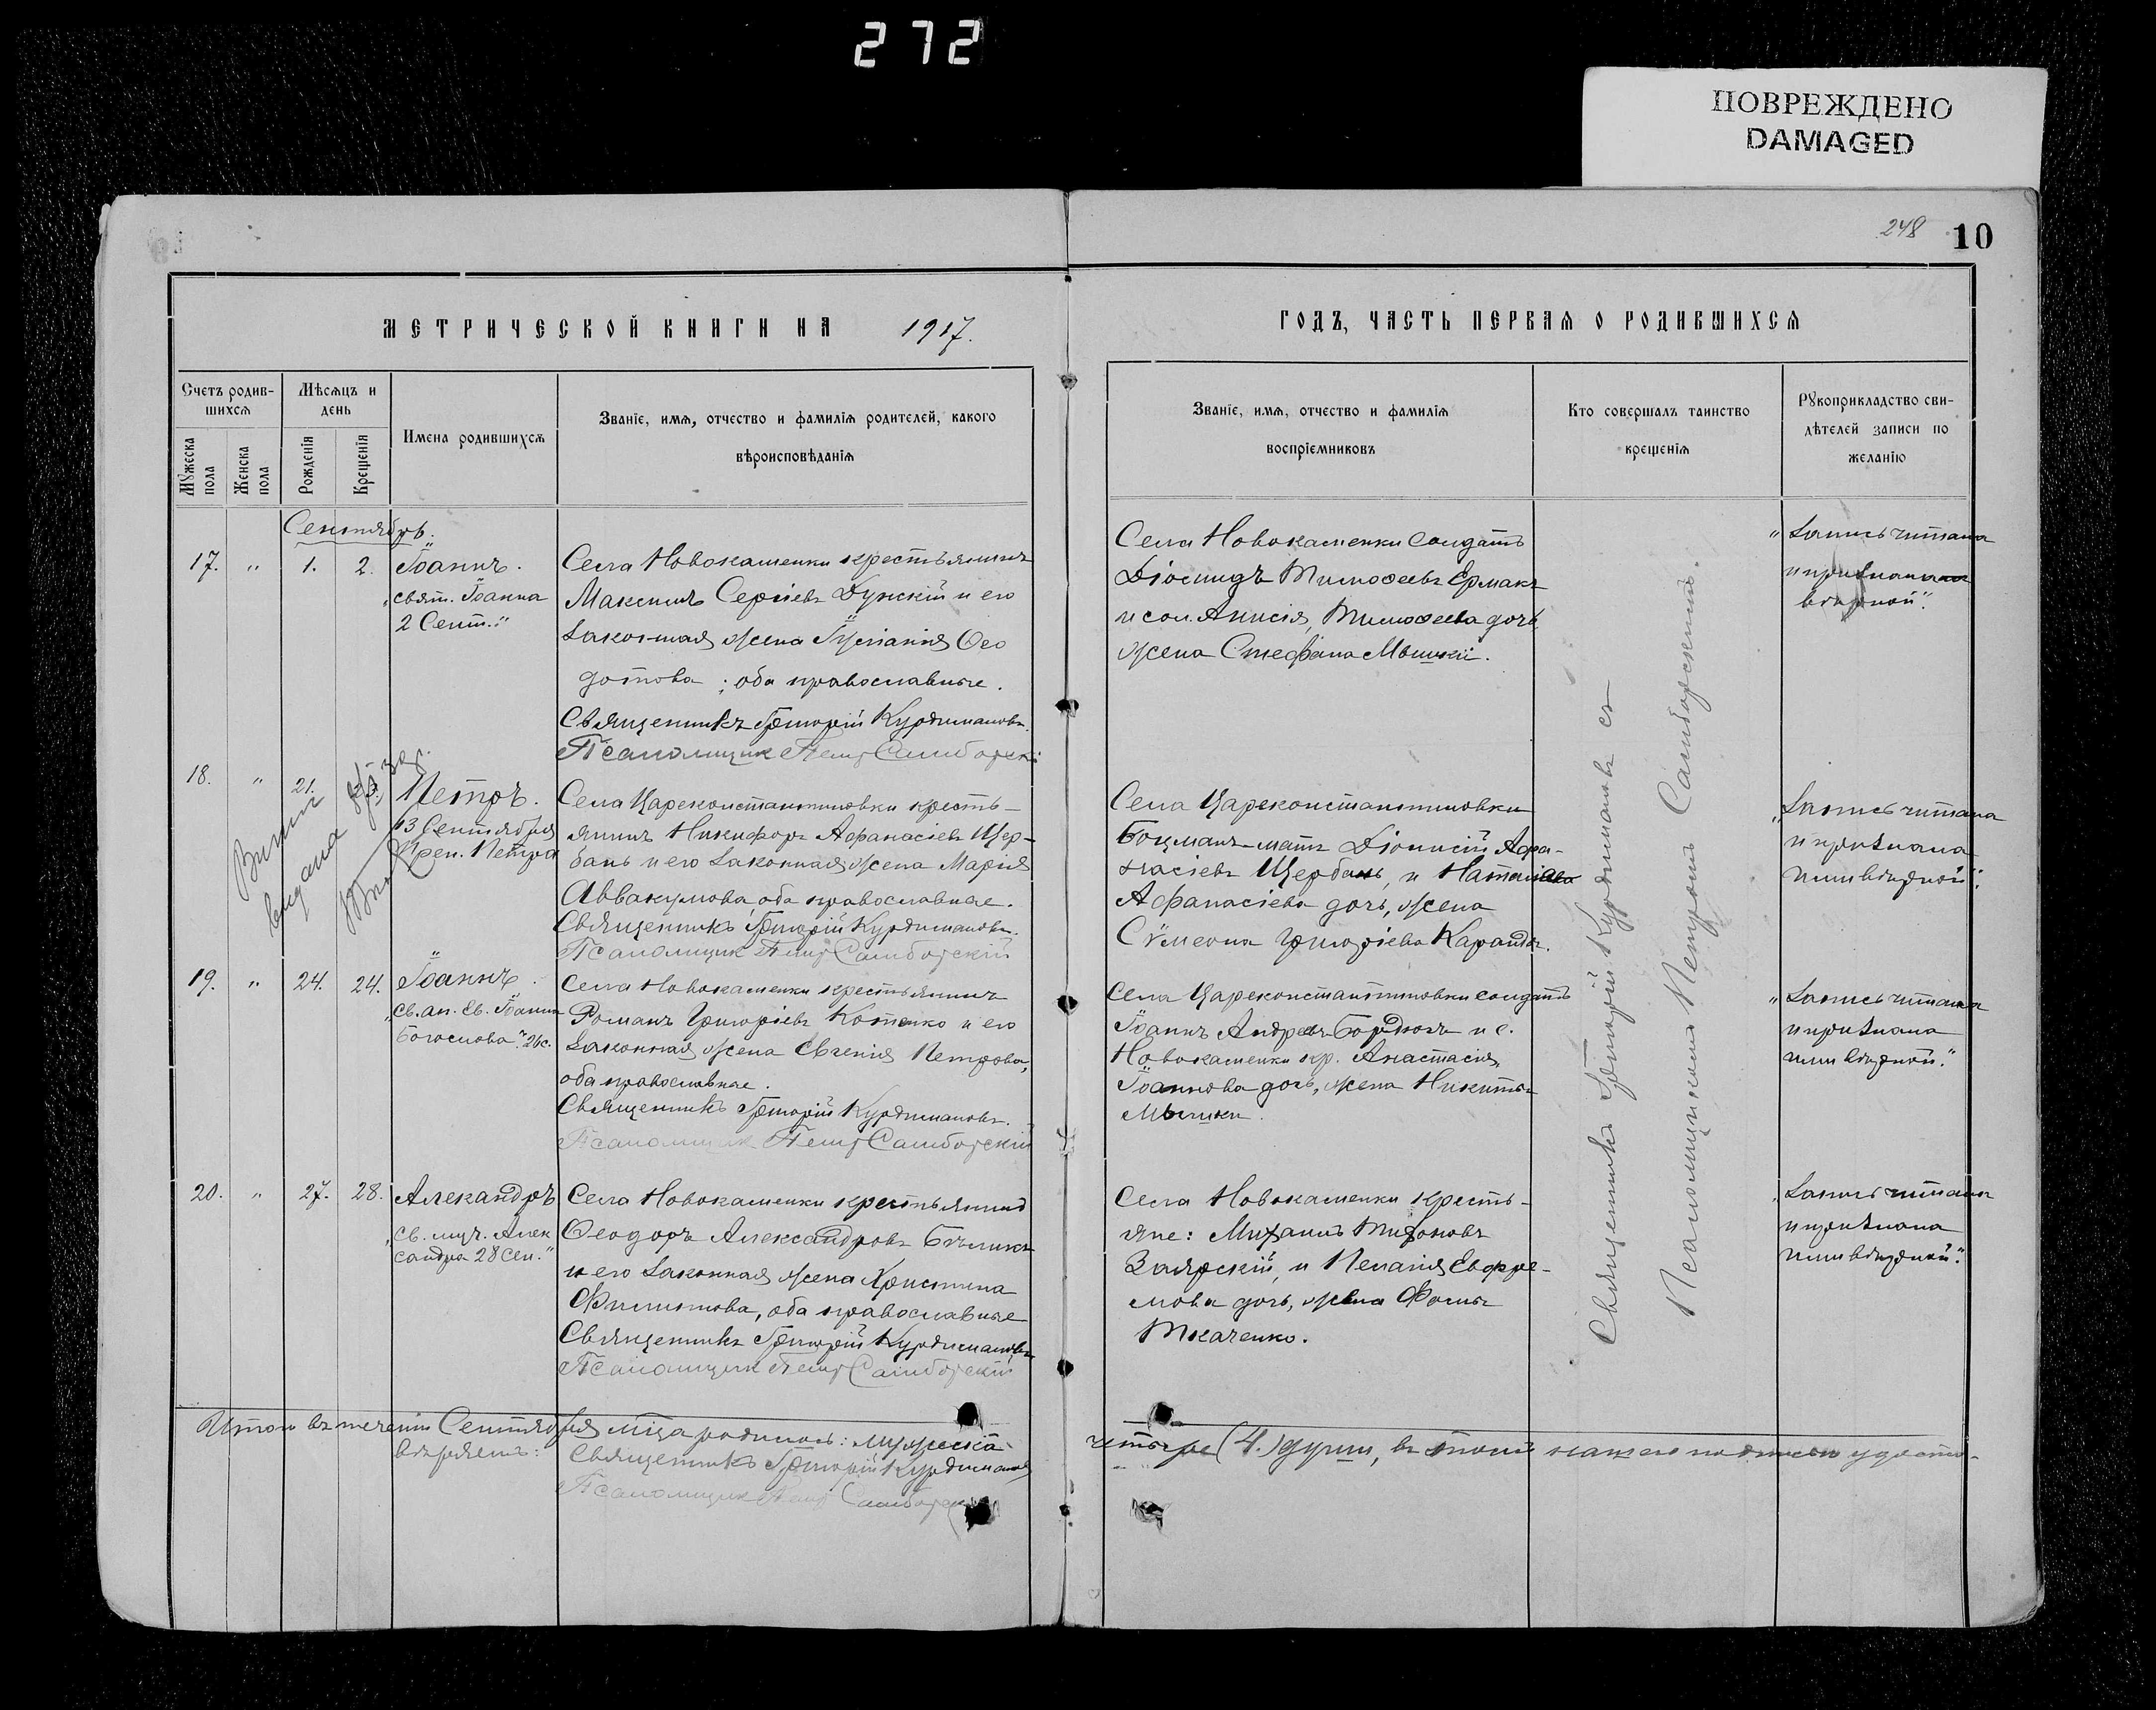 272
ПОВРЕЖДЕНО
DAMAGED
248 10
МЕТРИЧЕСКОЙ КНИГИ НА 1917.
ГОДЪ, ЧАСТЬ ПЕРВАЯ О РОДИВШИХСЯ
Счетъ родив-
шихся
Мужеска
пола
Женска
пола
Мѣсяцъ и
день
Рожденія
Крещенія
Имена родившихся
Званіе, имя, отчество и фамилія родителей, какого
вѣроисповѣданія
Званіе, имя, отчество и фамилія
воспріемниковъ
Кто совершалъ таинство
крещенія
Рукоприкладство сви-
дѣтелей записи по
желанію
Сентябрь.
17. " 1. 2.
Іоаннъ.
"свят. Іоанна
2 Сент."
Села Новокаменки крестьянинъ
Максимъ Сергіевъ Дунскій и его
законная жена Іуліанія Ѳео
дотова; оба православные.
Священникъ Григорій Курдимановъ.
Псаломщик Петр Самборскі
Села Новокаменки солдатъ
Діомидъ Тимоѳеевъ Ермакъ
и сол. Анисія, Тимоѳеева дочь,
жена Стефана Мышкій.
"Запись читана
и признана
вѣрной".
18. " 21.
Петръ.
13 Сентября
Прен. Петра
выдана
Села Цареконстантиновки кресть-
янинъ Никифоръ Аѳанасіевъ Щер-
бань и его законная жена Марія
Аввакумова, оба православные.
Священникъ Григорій Курдимановъ.
Псаломщик Петр Самборскій
Села Цареконстантиновки
Боцманъ-матъ Діонисій Аѳа-
насіевъ Щербань, и Наталія
Аѳанасіева дочь, жена
Сѵмеона Григоріева Карандъ.
"Запись читана
и признана
ими вѣрной".
19. " 24. 24.
Іоаннъ.
"Св. ап. Ев. Іоанна
Богослова" 26 с.
Села Новокаменки крестьянинъ
Романъ Григоріевъ Котенко и его
законная жена Евгенія Петрова,
оба православные.
Священникъ Григорій Курдимановъ.
Псаломщик Петр Самборскій
Села Цареконстантиновки солдатъ
Іоаннъ Андреевъ Бордюгъ и с.
Новокаменки кр. Анастасія,
Іоаннова дочь, жена Никиты
Мышки.
"Запись читана
и признана
ими вѣрной."
20. " 27. 28.
Александръ
"Св. муч. Алек
сандра 28 Сен."
Села Новокаменки крестьянинъ
Ѳеодоръ Александровъ Бѣликъ
и его законная жена Христина
Филиппова, оба православные
Священникъ Григорій Курдимановъ
Псаломщик Петр Самборскій
Села Новокаменки кресть-
яне: Михаилъ Тихоновъ
Заярскій, и Пелагія Евфре-
мова дочь, жена Ѳомы
Ткаченко.
"Запись читана
и признана
ими вѣрной".
Священникъ Григорій Курдимановъ съ
Псаломщикомъ Петромъ Самборскимъ.
Итого въ теченіи Сентября мѣца родилось: мужеска
четыре (4.) души, въ томъ нашею подписью удосто-
вѣряемъ:
Священникъ Григорій Курдимановъ
Псаломщик Петр Самборскі